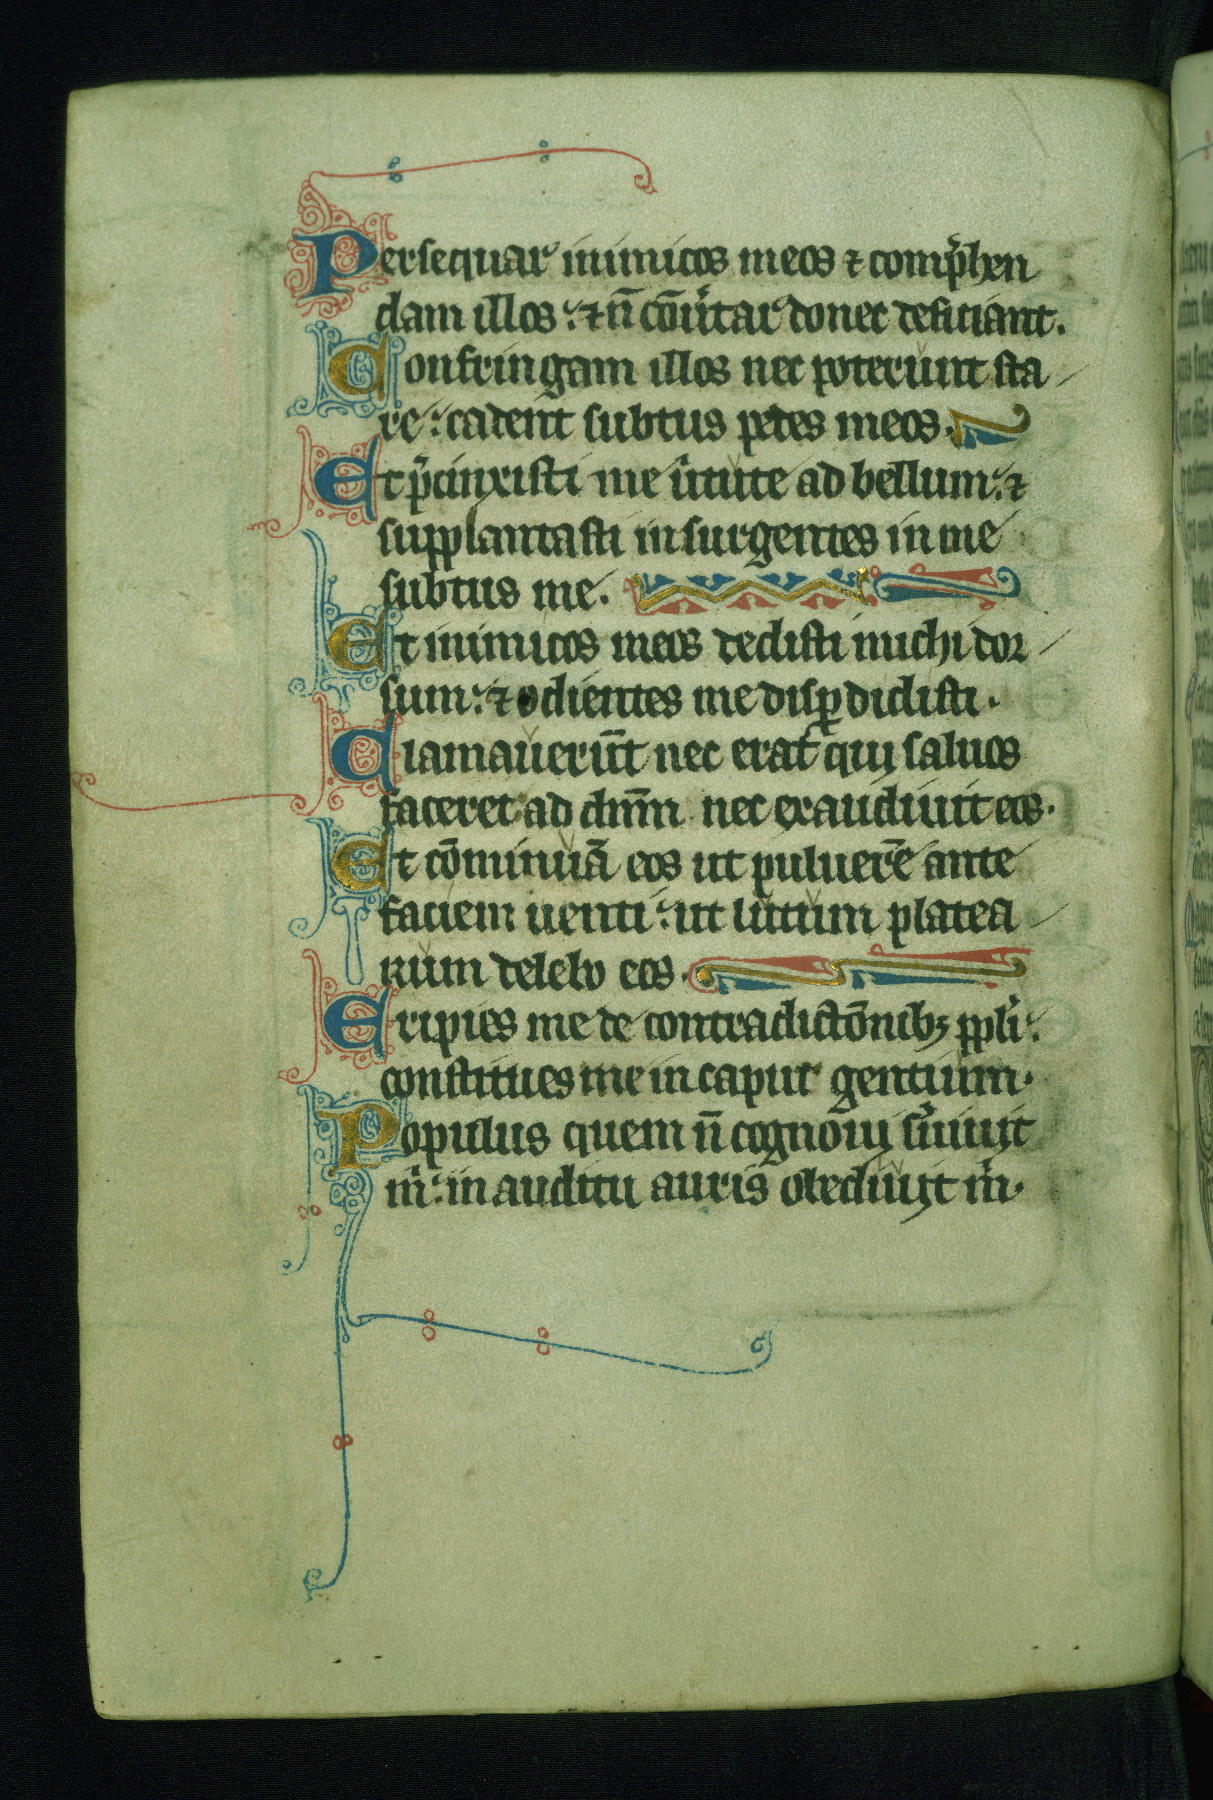 Persequar inimicos meos ⁊ comp̃hen
dam illos: ⁊ n̄ cōũtar donec deficiant.
Confringam illos nec poterunt sta
re: cadent subtus pedes meos.
Et p̃cinxisti me ũtute ad bellum: ⁊
supplantasti insurgentes in me
subtus me.
Et inimicos meos dedisti michi dor
sum: ⁊ odientes me disꝑdidisti.
Clamauerūt nec erat qui saluos
faceret ad dnm̄ nec exaudiuit eos.
Et cōminuā eos ut puluerē ante
faciem uenti: ut lutum platea
rum delebo eos.
Eripies me de contradictōnibꝫ ppl̃i:
constitues me in caput gentium.
Populus quem n̄ cognoui s̃uiuit
m̃: in auditu auris obediuit m̃.